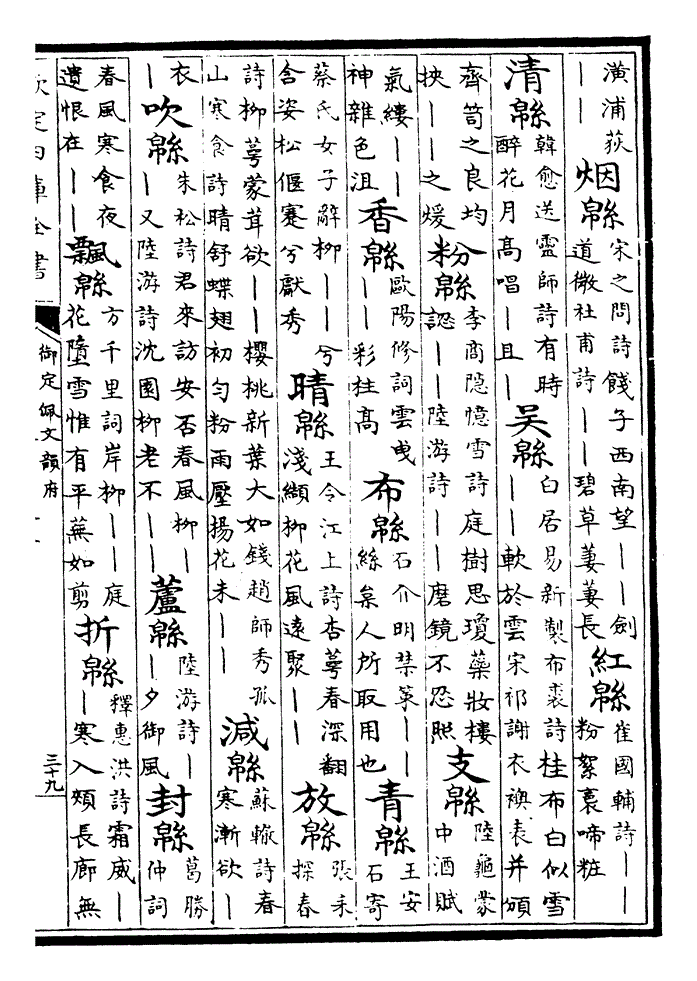 潢浦荻｜｜烟緜宋之問詩餞子西南望｜｜劍道微杜甫詩｜｜碧草萋萋長紅緜崔國輔詩｜｜粉絮裛啼粧
清緜韓愈送靈師詩有時醉花月高唱｜且｜吳緜白居易新製布裘詩桂布白似雪｜｜軟於雲宋祁謝衣襖表并頒
齊笥之良均挾｜｜之煖粉緜李商隱憶雪詩庭樹思瓊蘂妝樓認｜｜陸游詩｜｜磨鏡不忍照支緜陸龜蒙中酒賦
氣縷｜｜神雜色沮香緜歐陽修詞雲曳｜｜彩柱高布緜石介明禁策｜｜絲枲人所取用也青緜王安石寄
蔡氏女子辭柳｜｜兮含姿松偃蹇兮獻秀晴緜王令江上詩杏萼春深翻淺纈柳花風遠聚｜｜放緜張耒探春
詩柳萼蒙茸欲｜｜櫻桃新葉大如錢趙師秀孤山寒食詩晴舒蝶翅初勻粉雨壓楊花未｜｜減緜蘇轍詩春寒漸欲｜
衣｜吹緜朱松詩君來訪安否春風柳｜｜又陸游詩沈園柳老不｜｜蘆緜陸游詩｜｜夕御風封緜葛勝仲詞
春風寒食夜遺恨在｜｜飄緜方千里詞岸柳｜｜庭花墮雪惟有平蕪如剪折緜釋惠洪詩霜威｜｜寒入頰長廊無
欽定四庫全書
御定佩文韻府
三十九